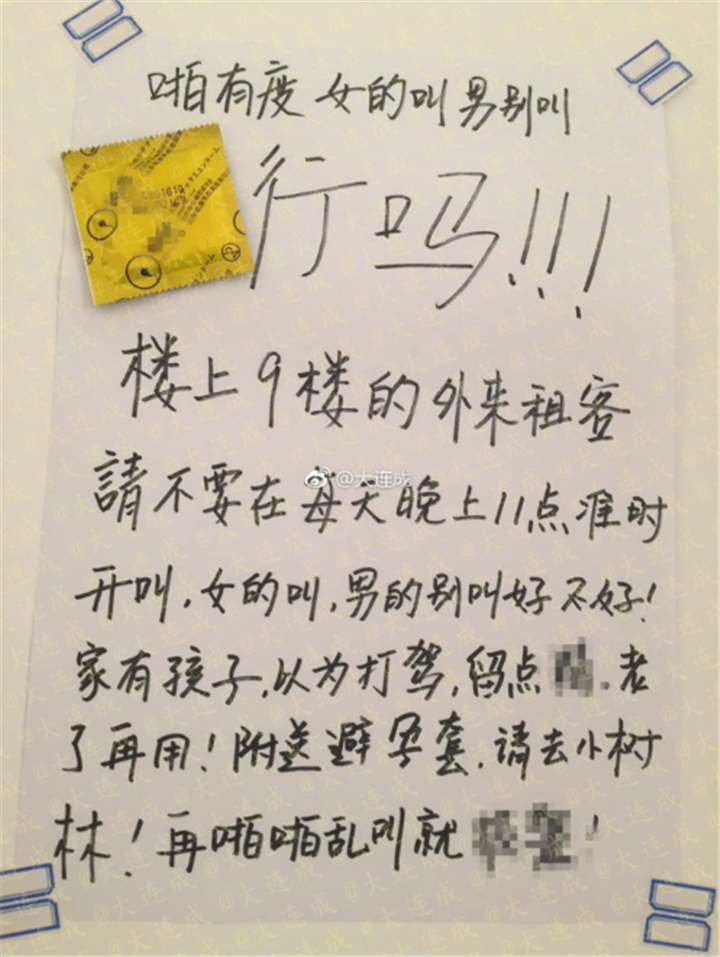 啪有度 女的叫男别叫
行吗!!!
楼上9楼的外来租客
請不要在每天晚上11点准时
开叫,女的叫,男的别叫好不好!
家有孩子,以为打驾,留点 .老
了再用!附送避孕套,请去小树
林!再啪啪乱叫就 !
@大连成